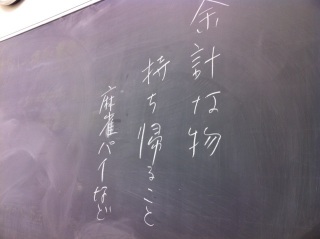 余計な物
持ち帰ること
麻雀パイなど